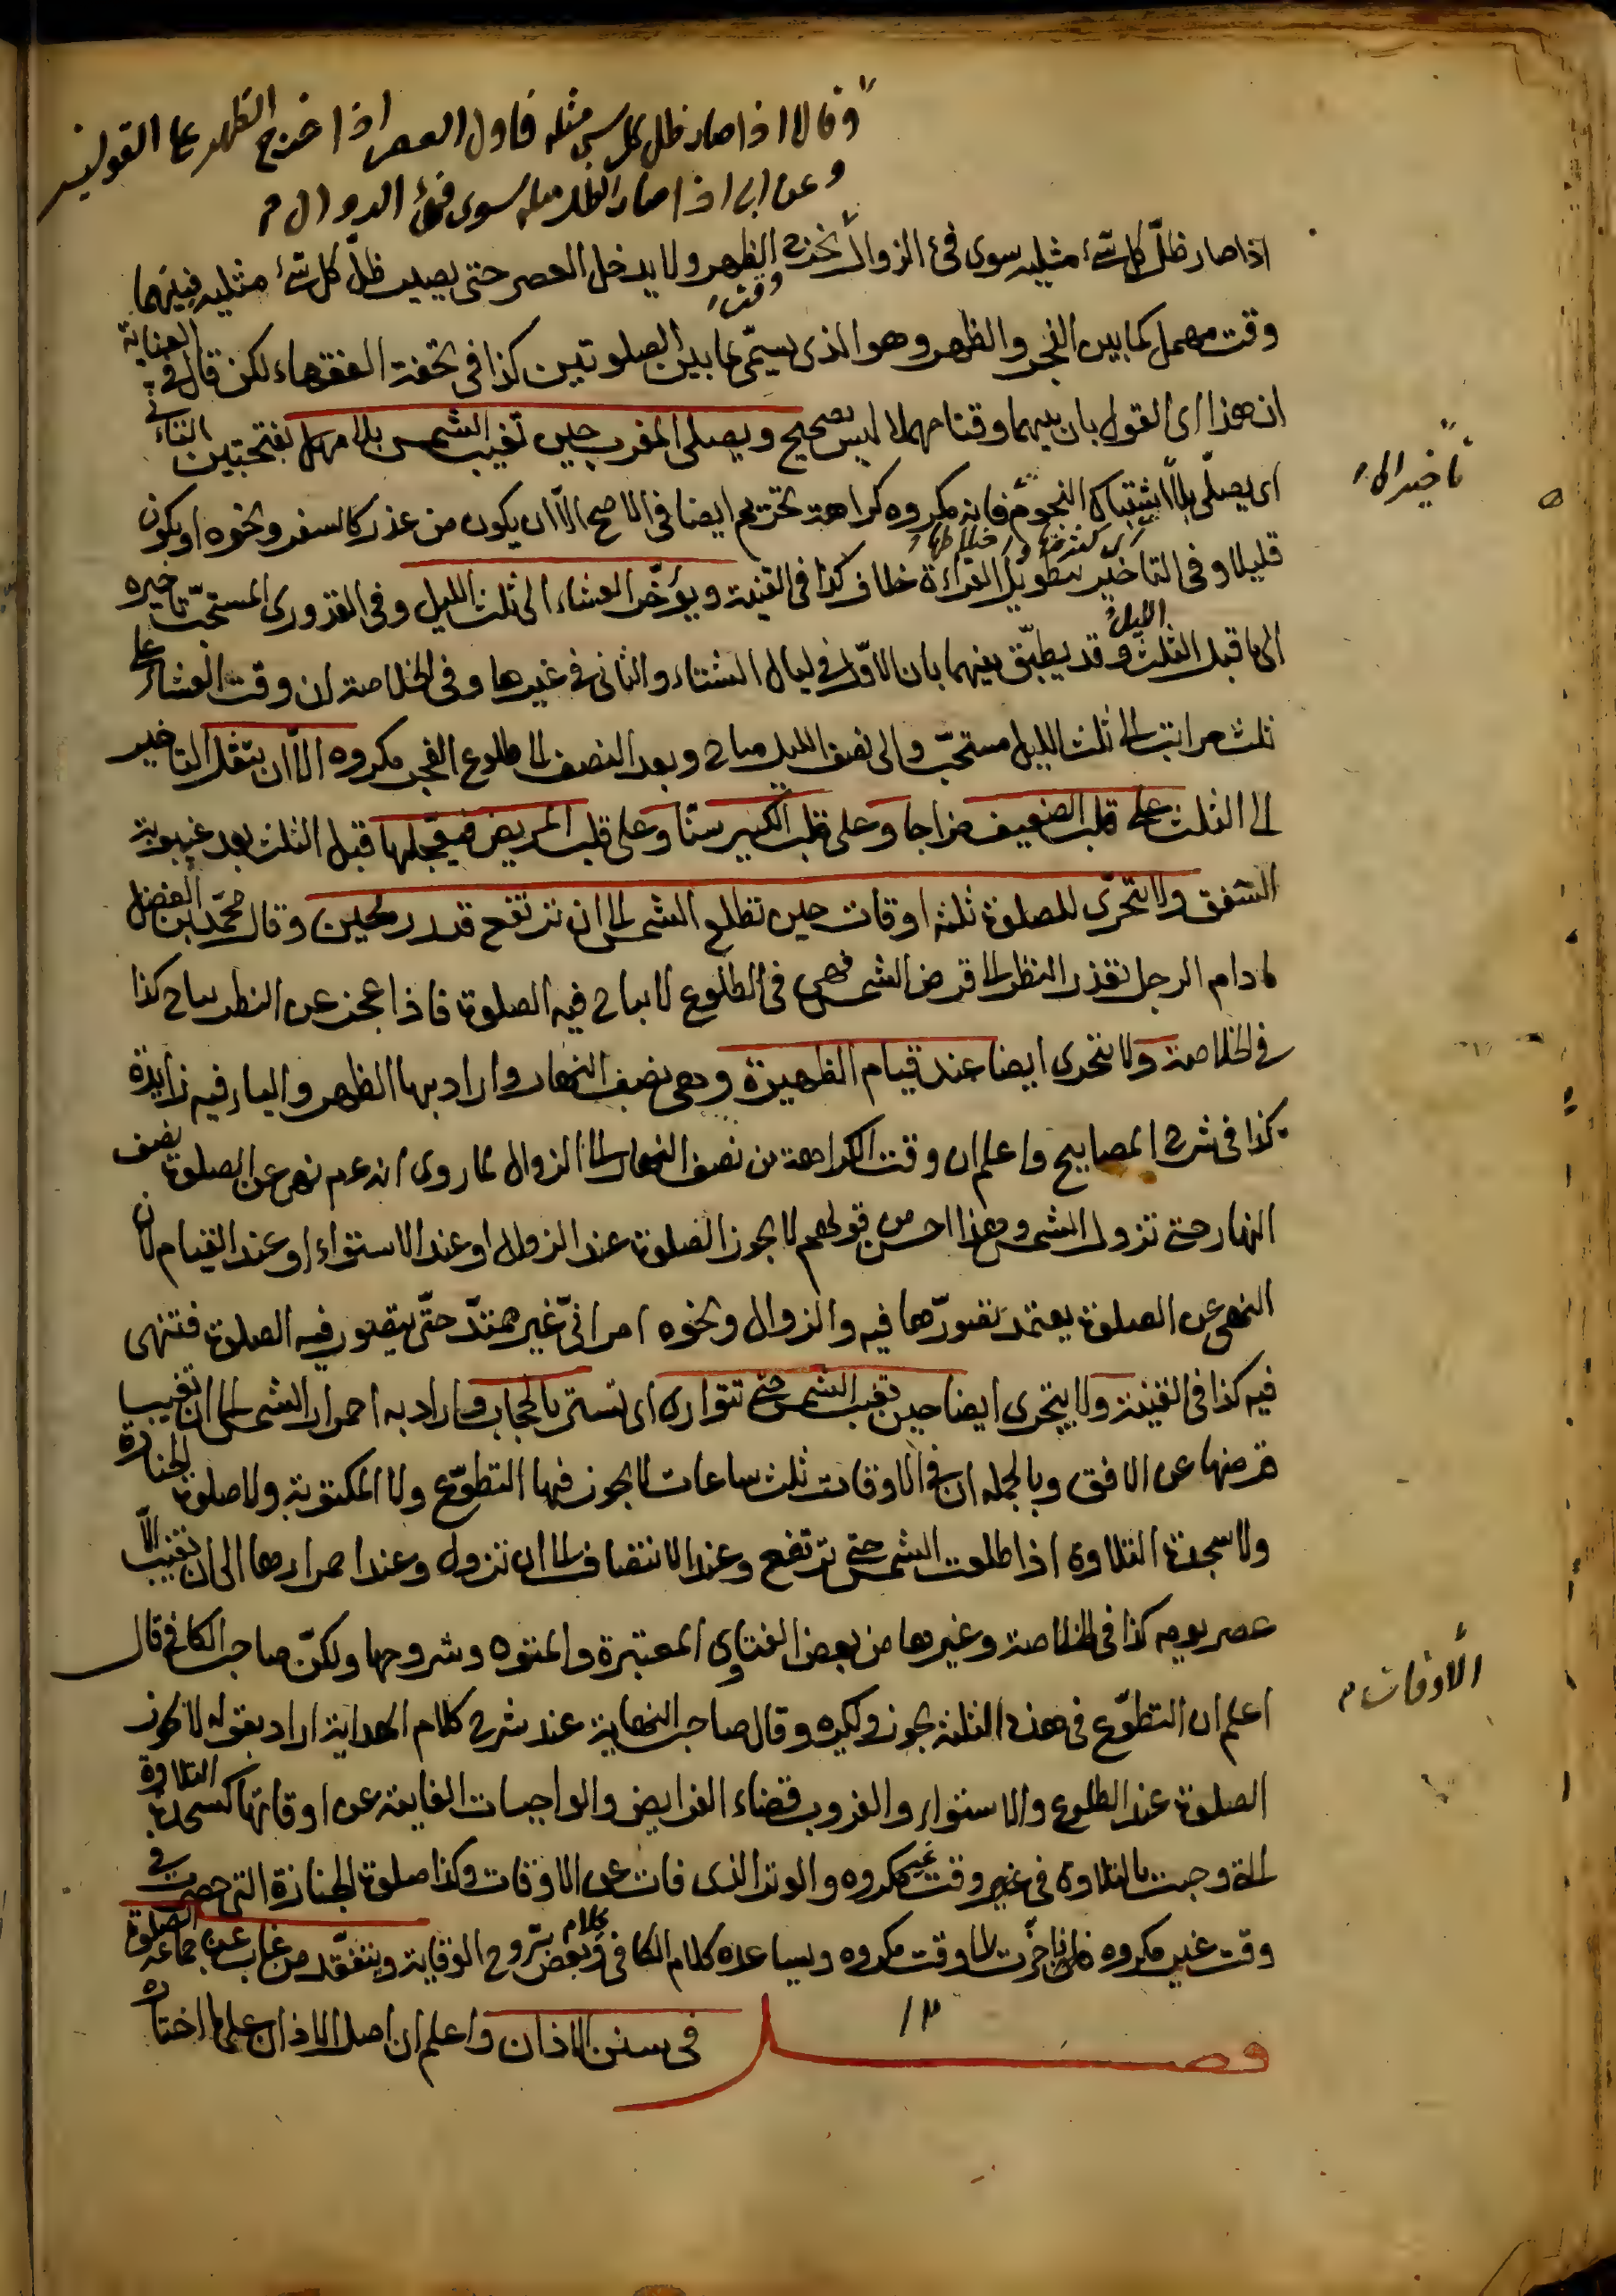 وقالا اذا صار ظل كل شئ مثله فاول العصر اذا خرج الظهر على القولين
وعن ابى اذا صار الظل مثله سوى فئ الزوال م
اذا صار ظلّ كل شئ مثليه سوى فئ الزوال يخرج وقت الظهر ولا يدخل العصر حتى يصير ظلّ كل شئ مثليه فبينهما
وقت مهمل كما بين الفجر والظهر وهو الذى يسمّى ما بين الصلوتين كذا فى تحفة الفقهاء لكن قال فى العناية
ان هذا اى القول بان بينهما وقتا مهملا ليس بصحيح ويصلى المغرب حين تغيب الشمس بلا مهل بفتحتين التأنى
اى يصلّى بلا تأخير الى اشتباك النجوم اى كثرتها واختلاطها فانه مكروه كراهة تحريم ايضا فى الاصح الاّ ان يكون من عذر كالسفر ونحوه او يكون
قليلا وفى التاخير بتطويل القراءة خلاف كذا فى القنية ويؤخّر العشاء الى ثلث الليل وفى القدورى المستحبّ تاخيره
الى ما قبل الثلث الليل وقد يطبّق بينهما بان الاوّل فى ليال الشتاء والثانى فى غيرها وفى الخلاصة ان وقت العشاء على
ثلث مراتب الى ثلث الليل مستحبّ والى نصف الليل مباح وبعد النصف الى طلوع الفجر مكروه الاّ ان يثقل التاخير
الى الثلث على قلب الضعيف مزاجا وعلى قلب الكبير سنّا وعلى قلب المريض فيعجّلها قبل الثلث بعد غيبوبة
الشفق ولا يتحرّى للصلوة ثلثة اوقات حين تطلع الشمس الى ان ترتفع قدر رمحين وقال محمّد بن الفضل
ما دام الرجل يقدر النظر الى قرص الشمس فهى فى الطلوع لا يباح فيه الصلوة فاذا عجز عن النظر يباح كذا
فى الخلاصة ولا يتحرى ايضا عند قيام الظهيرة وهى نصف النهار واراد بها الظهر والياء فيه زايدة
كذا فى شرح المصابيح واعلم ان وقت الكراهة من نصف النهار الى الزوال لما روى انه عم نهى عن الصلوة نصف
النهار حتى تزول الشمس وهذا احسن من قولهم لا يجوز الصلوة عند الزوال او عند الاستواء او عند القيام لان
النهى عن الصلوة يعتمد تصوّرها فيه والزوال ونحوه امر انىّ غير ممتدّ حتّى يتصور فيه الصلوة فتنهى
فيه كذا فى القنية ولا يتحرى ايضا حين تغيب الشمس حتى تتوارى اى تستتر بالحجاب واراد به احمرار الشمس الى ان تغيب
قرصها عن الافق وبالجملة ان فى الاوقات ثلث ساعات لا يجوز فيها التطوّع ولا المكتوبة ولا صلوة الجنازة
ولا سجدة التلاوة اذا طلعت الشمس حتى ترتفع وعند الانتصاف الى ان تزول وعند احمرارها الى ان تغيب الاّ
عصر يومه كذا فى الخلاصة وغيرها من بعض الفتاوى المعتبرة والمتون وشروحها ولكنّ صاحب الكافى قال
اعلم ان التطوّع فى هذه الاوقات الثلثة يجوز ويكره وقال صاحب النهاية عند شرح كلام الهداية اراد بقوله لا يجوز
الصلوة عند الطلوع والاستواء والغروب قضاء الفرايض والواجبات الفايتة عن اوقاتها كسجدة التلاوة
التى وجبت بالتلاوة فى غير وقت مكروه والوتر الذى فات عن الاوقات وكذا صلوة الجنازة التى حضرت فى
وقت غير مكروه فاخّرت الى وقت مكروه ويساعده كلام الكافى وكلام بعض شروح الوقاية ويتفقّد من غاب عن جماعة الصلوة
فصل ١٣ فى سنن الاذان واعلم ان اصل الاذان على ما اختاره
تأخير الى
الاوقات م